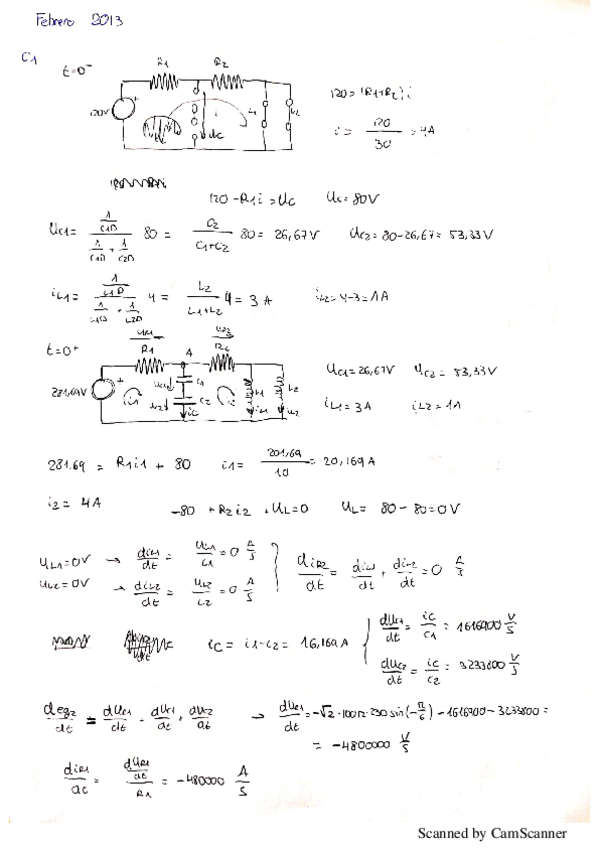 Febrero 2013
C1
t=0⁻
R1 R2
120 = (R1+R2) i
120V
Uc
L1
L2
i = 120/30 = 4A
120 - R1i = Uc Uc = 80V
Uc1 = (1/C1D)/(1/C1D + 1/C2D) 80 = C2/(C1+C2) 80 = 26,67V Uc2 = 80-26,67 = 53,33V
iL1 = (1/L1D)/(1/L1D + 1/L2D) 4 = L2/(L1+L2) 4 = 3A iL2 = 4-3 = 1A
t=0⁺
UR1 UR2
R1 A R2
281,69V
i1
Uc1 C1
Uc2 C2
ic
L1 L2
iL1 iL2
Uc1 = 26,67V Uc2 = 53,33V
iL1 = 3A iL2 = 1A
281,69 = R1i1 + 80 i1 = 201,69/10 = 20,169A
i2 = 4A -80 + R2i2 + UL = 0 UL = 80-80 = 0V
UL1 = 0V → diL1/dt = UL1/L1 = 0 A/S
UL2 = 0V → diL2/dt = UL2/L2 = 0 A/S
diR2/dt = diL1/dt + diL2/dt = 0 A/S
ic = i1-i2 = 16,169A
dUc1/dt = ic/C1 = 1616900 V/S
dUc2/dt = ic/C2 = 3233800 V/S
deg2/dt = dUR1/dt + dUc1/dt + dUc2/dt → dUR1/dt = -√2·100π·230 sin(-π/6) - 1616900 - 3233800 =
= -4800000 V/S
diR1/dt = (dUR1/dt)/R1 = -480000 A/S
Scanned by CamScanner